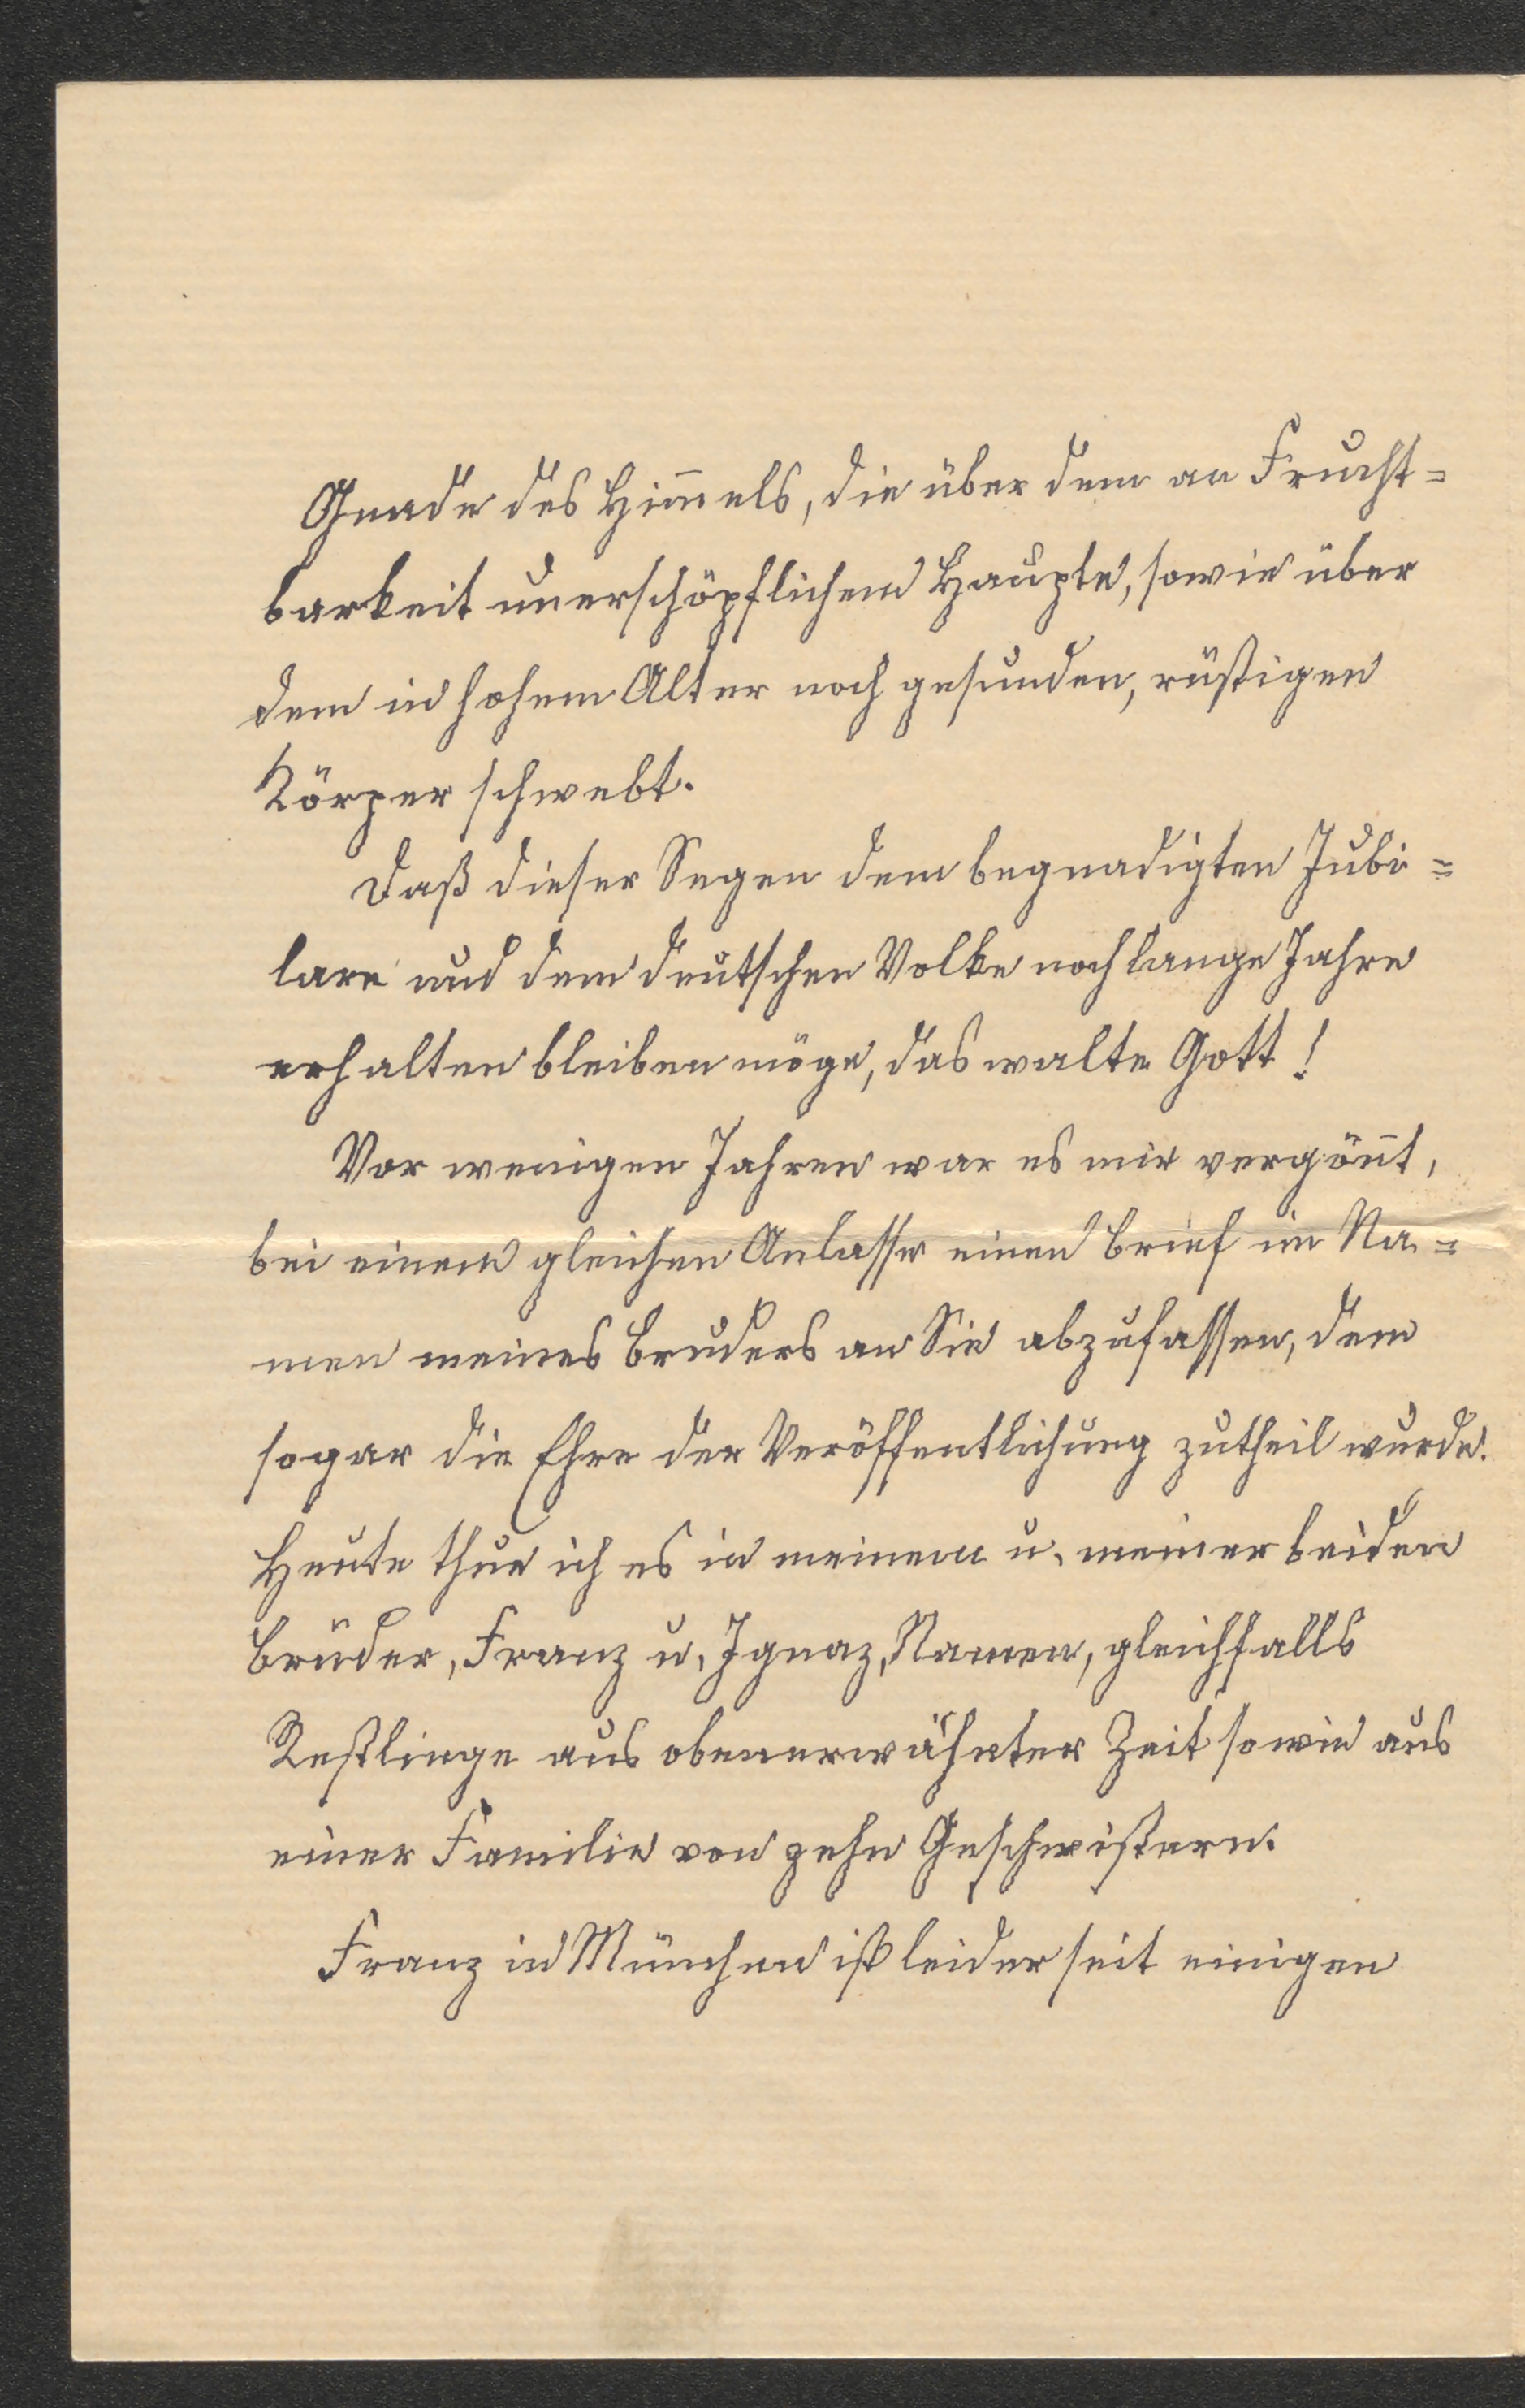 Gnade des Him̄els, die über dem an Frucht=
barkeit unerschöpflichem Haupte, sowie über
dem in hohem Alter noch gesunden, rüstigen
Körper schwebt.
Daß dieser Segen dem begnadigten Jubi=
lare und dem deutschen Volke noch lange Jahre
erhalten bleiben möge, das walte Gott!
Vor wenigen Jahren war es mir vergön̄t,
bei einem gleichen Anlasse einen Brief im Na=
men meines Bruders an Sie abzufassen, dem
sogar die Ehre der Veröffentlichung zutheil wurde.
Heute thue ich es in meinem u. meiner beiden
Brüder, Franz u. Ignaz, Namen, gleichfalls
Restlinge aus obenerwähnter Zeit sowie aus
einer Familie von zehn Geschwistern.
Franz in München ist leider seit einigen